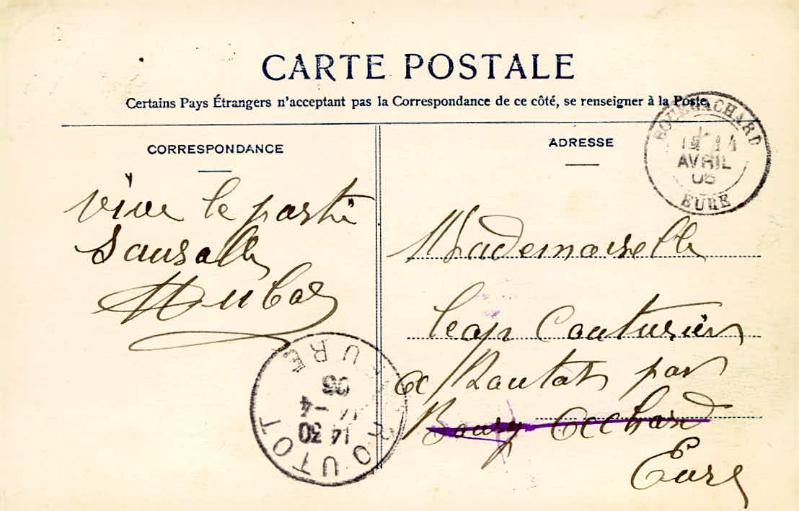 CARTE POSTALE
Certains Pays Étrangers n'acceptant pas la Correspondance de ce côté, se renseigner à la Poste.
CORRESPONDANCE
ADRESSE
BOURGACHARD
14
AVRIL
05
EURE
vive le parti
Mademoiselle
Couturier
a Routot par
Bourg Achard
Eure
ROUTOT
14 30
-4
EURE